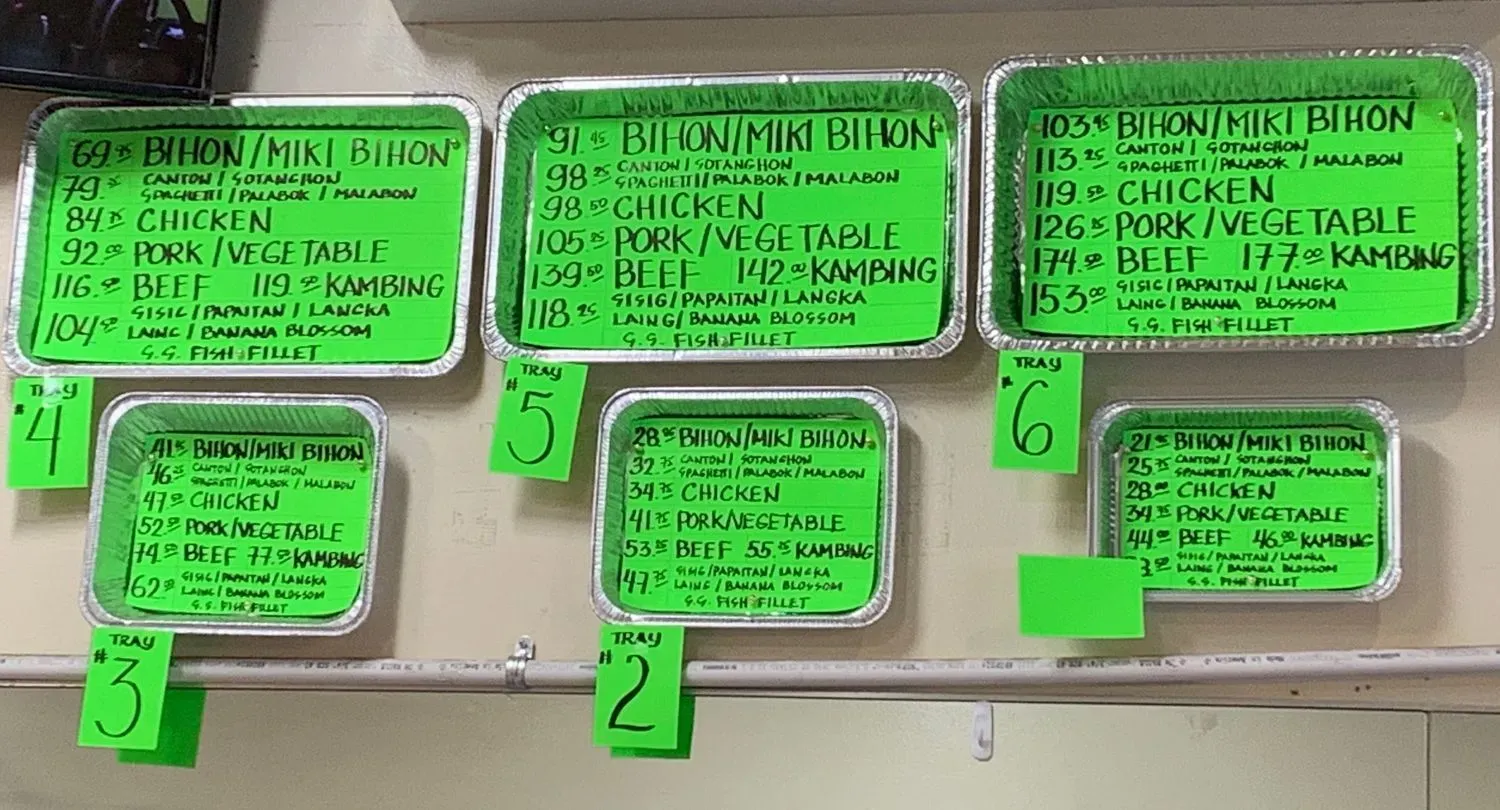 BIHON/MIKI BIHON
79. CANTON / SOTANGHON
SPAGHETTI/PALABOK / MALABON
84. CHICKEN
92.00 PORK/VEGETABLE
116. BEEF 119. KAMBING
SISIG/PAPAITAN / LANGKA
104. LAING/BANANA BLOSSOM
G.G. FISH FILLET
TRAY
# 4
91.45 BIHON/MIKI BIHON
98.25 CANTON / SOTANGHON
SPAGHETTI/PALABOK / MALABON
98.50 CHICKEN
105. PORK/VEGETABLE
139.50 BEEF 142.00 KAMBING
SISIG/PAPAITAN/LANGKA
118.25 LAING/BANANA BLOSSOM
G.G. FISH FILLET
TRAY
# 5
103. BIHON/MIKI BIHON
113.25 CANTON / SOTANGHON
SPAGHETTI/PALABOK / MALABON
119.50 CHICKEN
126. PORK/VEGETABLE
174. BEEF 177.00 KAMBING
SISIG/PAPAITAN/LANGKA
153.00 LAING/BANANA BLOSSOM
G.G. FISH FILLET
TRAY
# 6
41. BIHON/MIKI BIHON
46. CANTON / SOTANGHON
SPAGHETTI/PALABOK / MALABON
47. CHICKEN
52. PORK/VEGETABLE
74. BEEF 77. KAMBING
SISIG/PAPAITAN/LANGKA
62. LAING/BANANA BLOSSOM
G.G. FISH FILLET
TRAY
# 3
28. BIHON/MIKI BIHON
32.75 CANTON / SOTANGHON
SPAGHETTI/PALABOK/MALABON
34. CHICKEN
41. PORK/VEGETABLE
53. BEEF 55. KAMBING
SISIG/PAPAITAN/LANGKA
47. LAING/BANANA BLOSSOM
G.G. FISH FILLET
TRAY
# 2
21. BIHON/MIKI BIHON
25. CANTON / SOTANGHON
SPAGHETTI/PALABOK/MALABON
28. CHICKEN
34. PORK/VEGETABLE
44. BEEF 46. KAMBING
SISIG/PAPAITAN/LANGKA
LAING/BANANA BLOSSOM
G.G. FISH FILLET